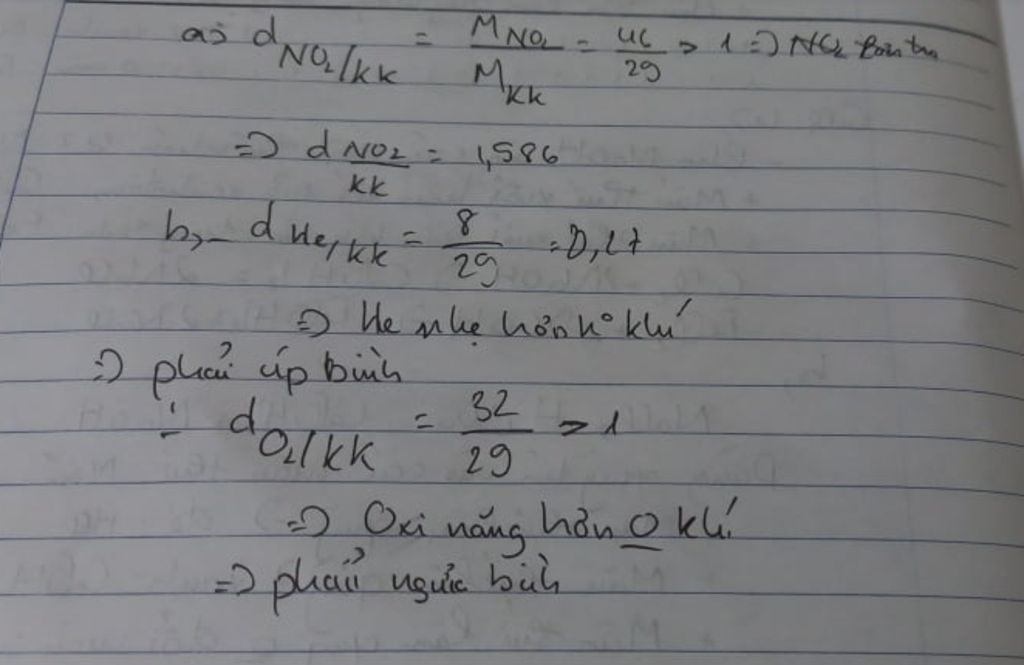 a) d NO2/kk = M NO2 / M kk = 46/29 > 1 => NO2
=> d NO2/kk = 1,586
b, - d He/kk = 8/29 = 0,27
=> He nhẹ hơn k° khí
=> phải úp bình
- d O2/kk = 32/29 > 1
=> Oxi nặng hơn 0 khí
=> phải ngửa bình